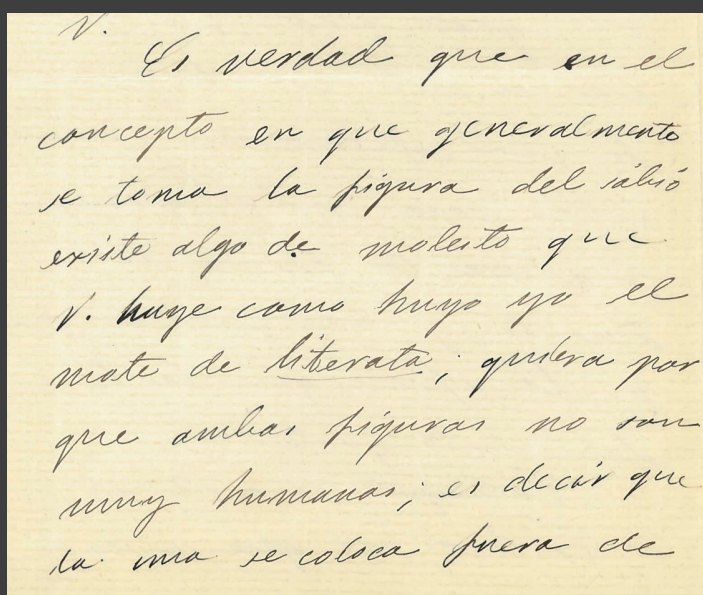 V.
Es verdad que en el
concepto en que generalmente
se toma la figura del sabio
existe algo de molesto que
V. huye como huyo yo el
mote de literata; quiera por
que ambas figuras no son
muy humanas; es decir que
la una se coloca fuera de